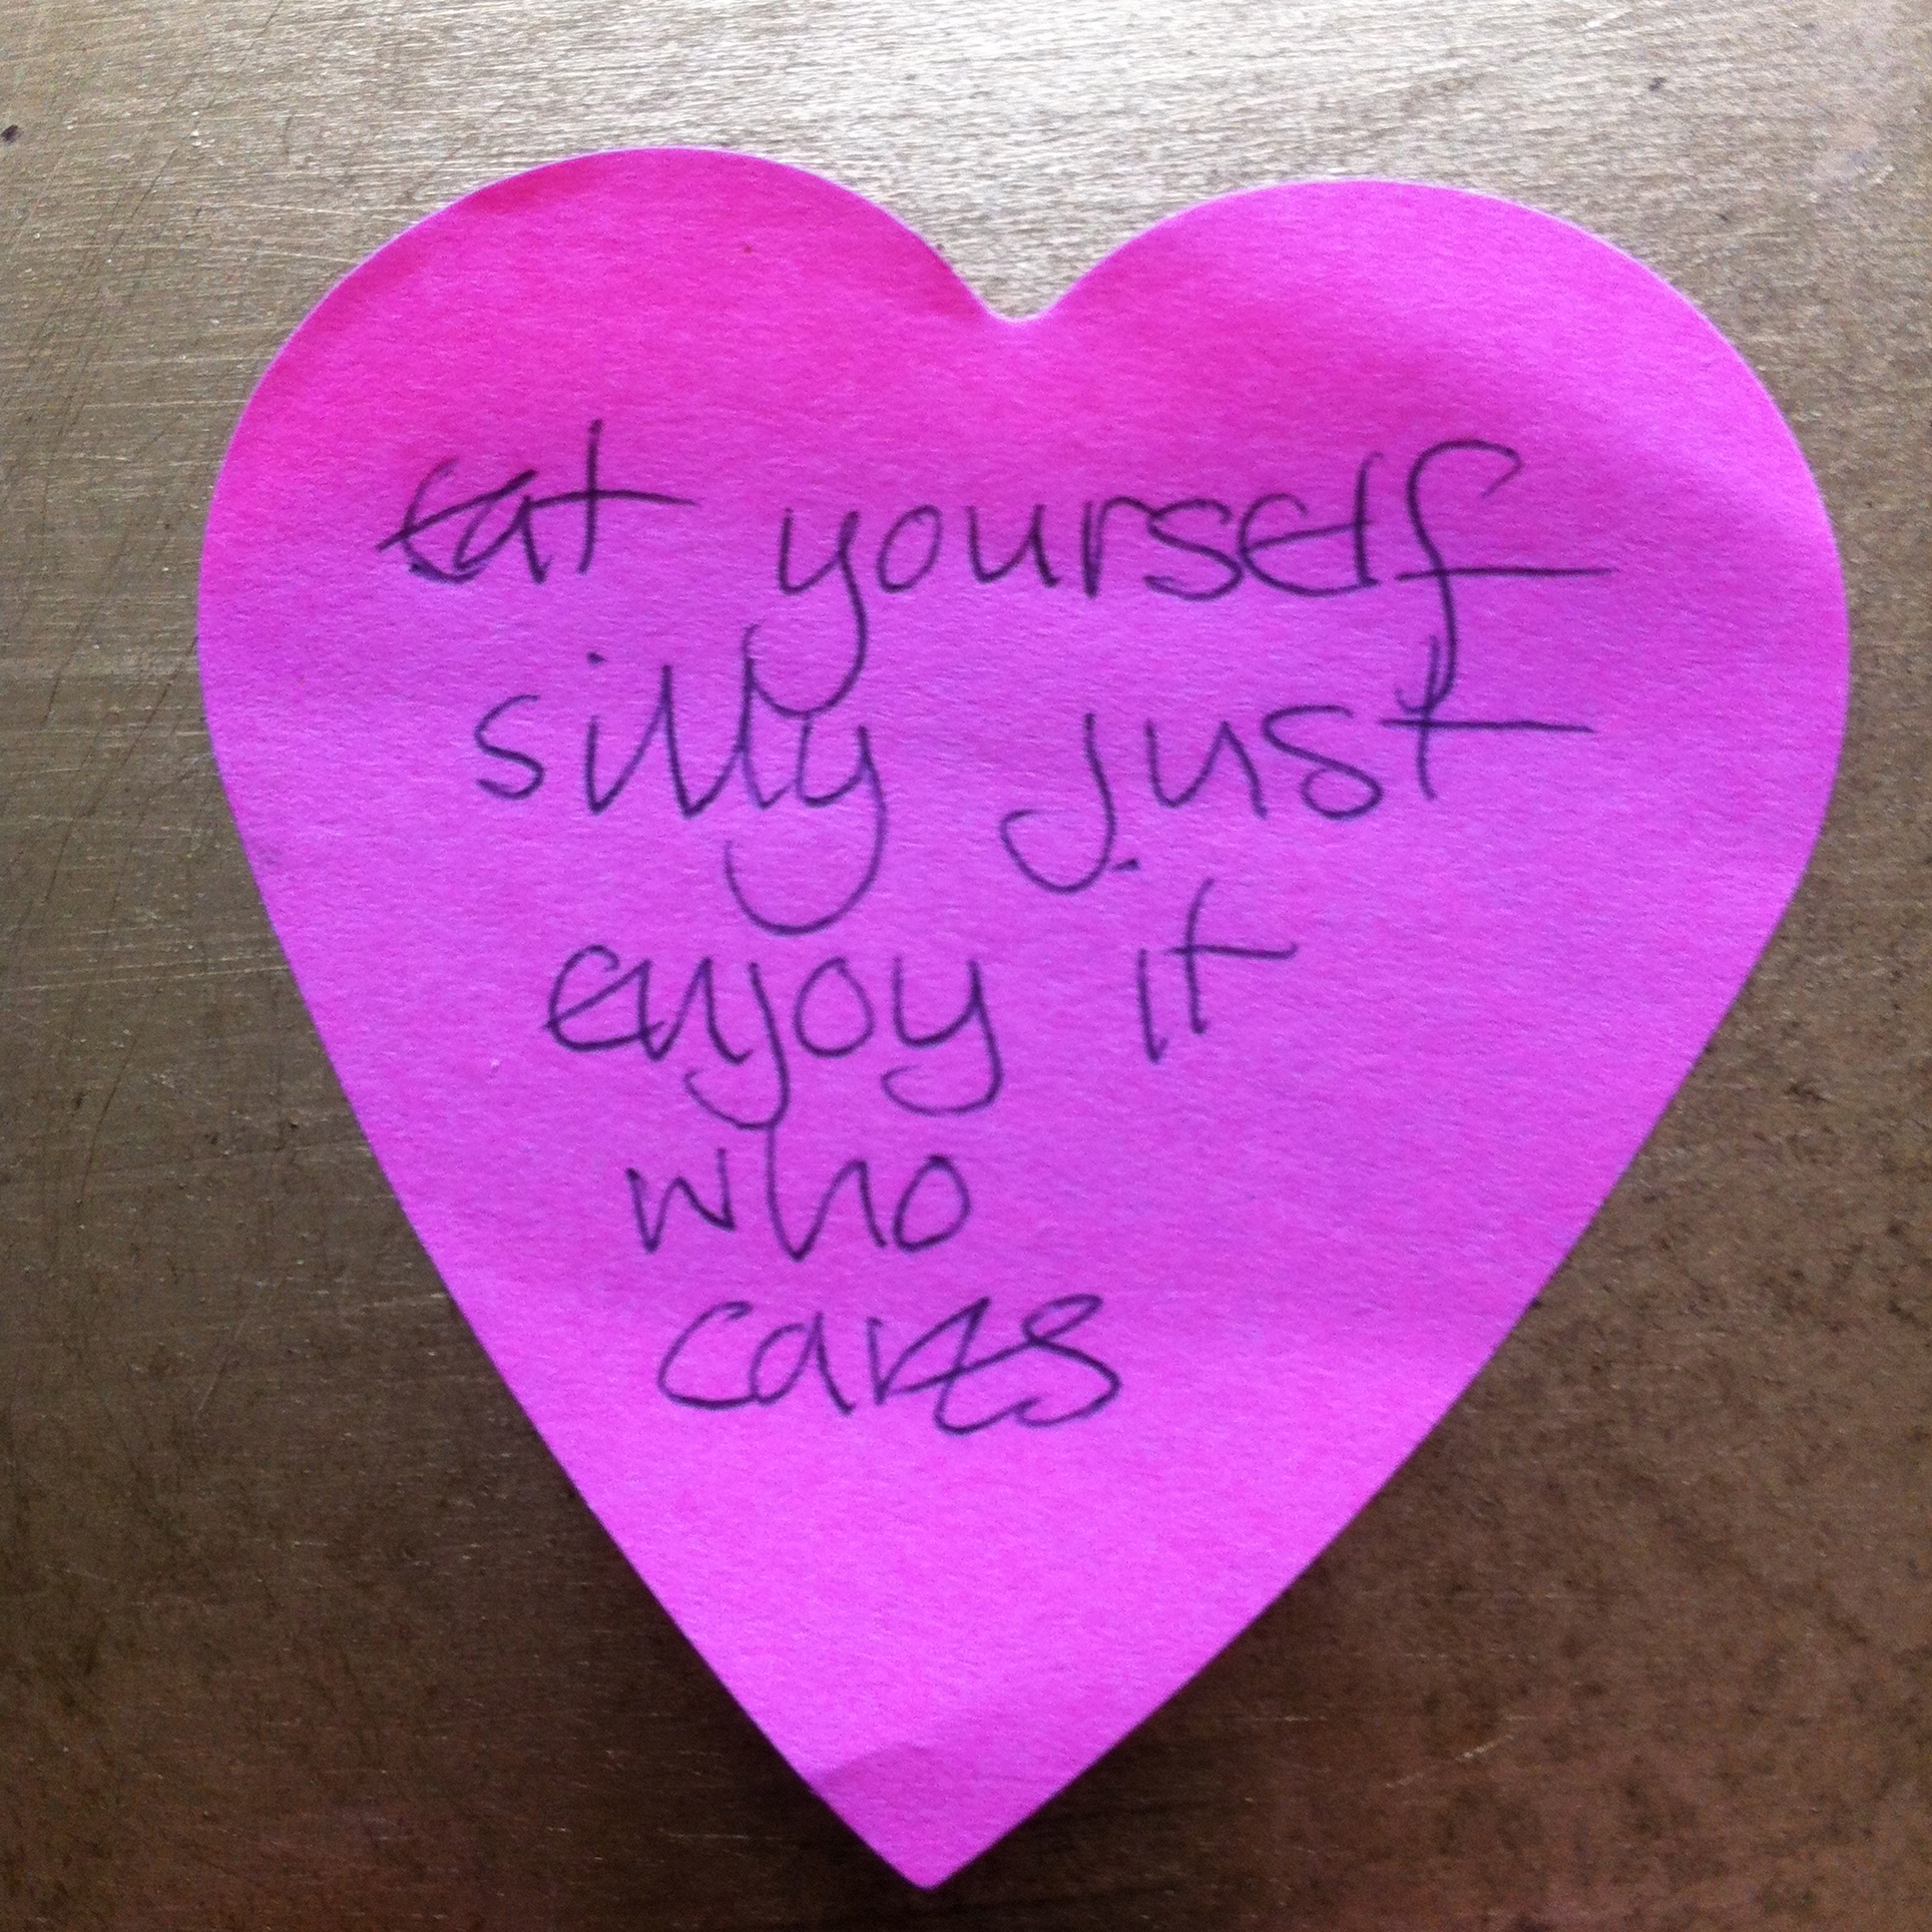 eat yourself
silly just
enjoy it
who
cares